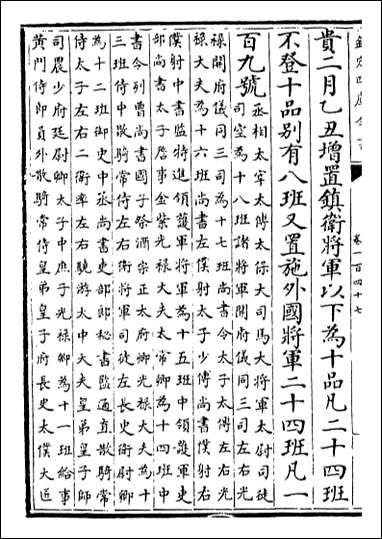 欽定四庫全書
卷一百四十七
貴二月乙丑增置鎮衛將軍以下為十品凡二十四班
不登十品別有八班又置施外國將軍二十四班凡一
百九號
丞相太宰太傅太保大司馬大將軍太尉司徒
司空為十八班諸將軍開府儀同三司左右光
祿開府儀同三司為十七班尚書令太子太傅左右光
祿大夫為十六班尚書左僕射太子少傅尚書僕射右
僕射中書監特進領護軍將軍為十五班中領護軍吏
部尚書太子詹事金紫光祿大夫太常卿為十四班中
書令列曹尚書國子祭酒宗正太府卿光祿大夫為十
三班侍中散騎常侍左右衛將軍司徒左長史衛尉卿
為十二班御史中丞尚書吏部郎秘書監通直散騎常
侍太子左右二衛率左右驍游太中大夫皇弟皇子師
司農少府廷尉卿太子中庶子光祿卿為十一班給事
黃門侍郎員外散騎常侍皇弟皇子府長史太僕大匠